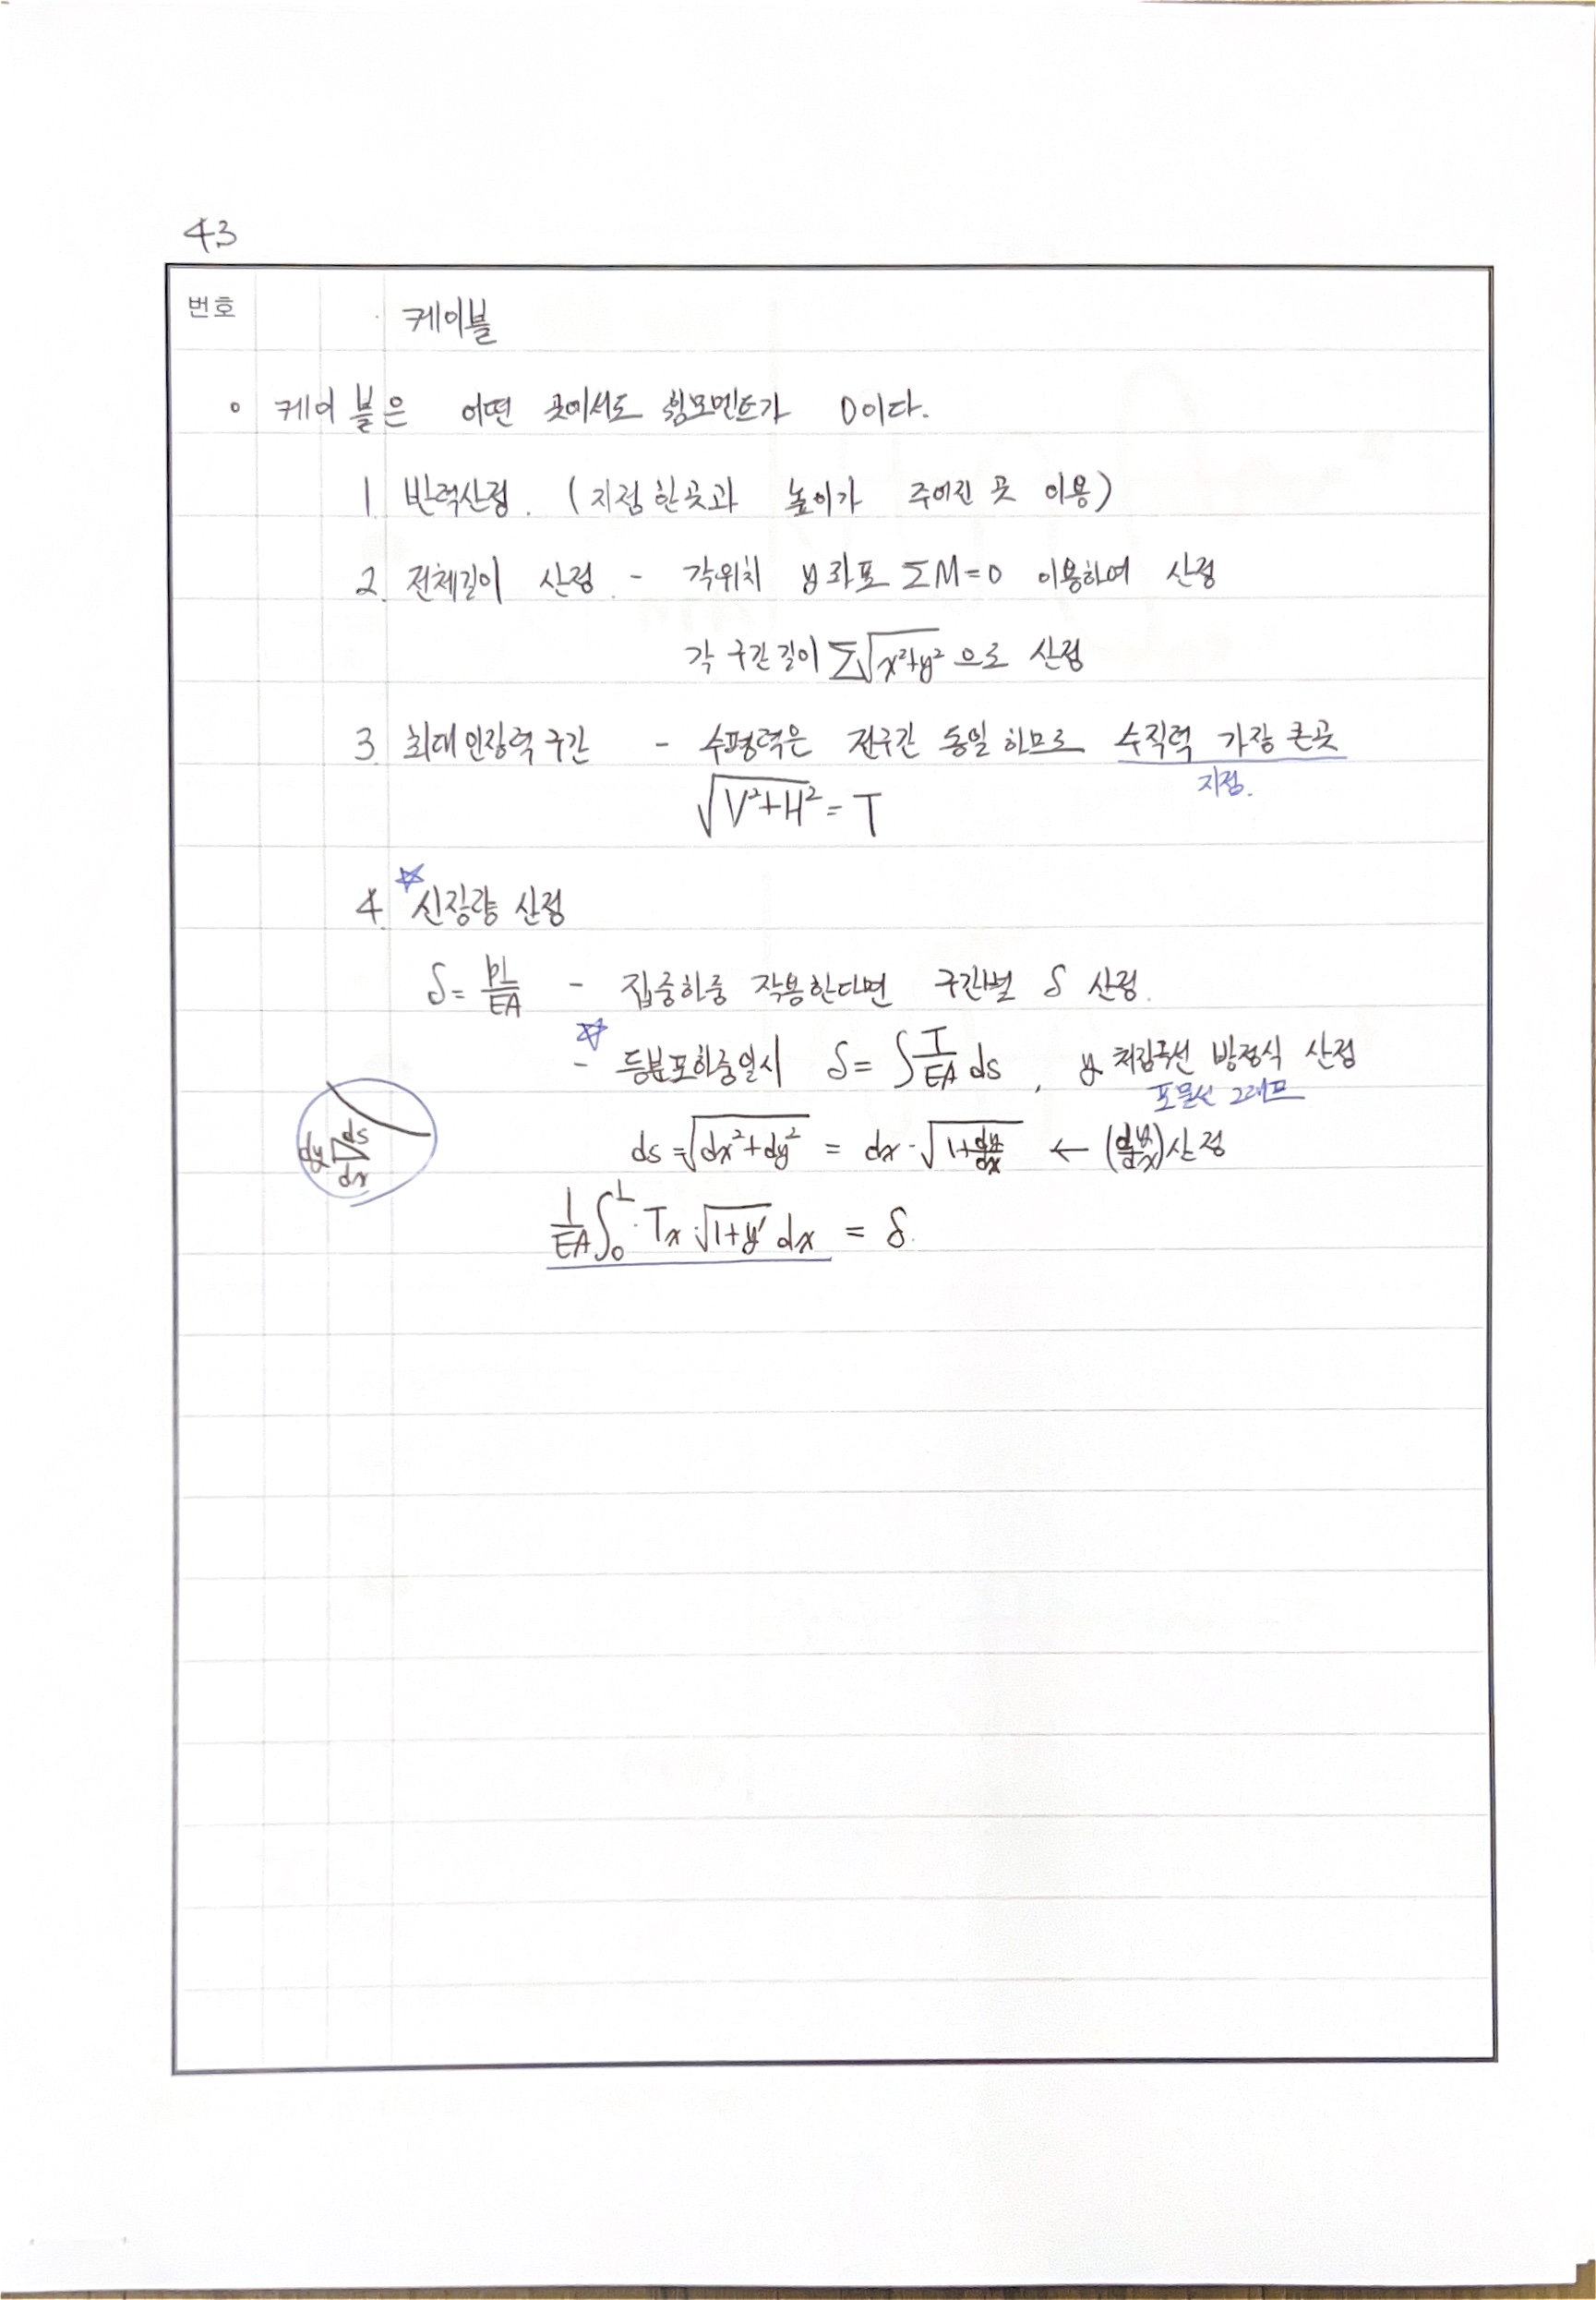 43
번호 케이블
∘ 케이블은 어떤 곳에서도 휨모멘트가 0이다.
1. 반력산정. (지점 한곳과 높이가 주어진 곳 이용)
2. 전체길이 산정 - 각위치 y좌표 ΣM=0 이용하여 산정
각 구간길이 Σ√(x²+y²) 으로 산정
3. 최대인장력 구간 - 수평력은 전구간 동일 하므로 수직력 가장 큰곳
지점.
√(V²+H²) = T
4. ☆신장량 산정
δ= PL/EA - 집중하중 작용한다면 구간별 δ 산정.
☆
- 등분포하중일시 δ= ∫ T/EA ds , y 처짐곡선 방정식 산정
포물선 그래프
ds dy dx
ds =√(dx²+dy²) = dx·√(1+dy/dx) ← (dy/dx)산정
1/EA ∫₀ᴸ·Tx·√(1+y′) dx = δ.